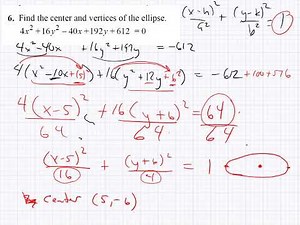 6. Find the center and vertices of the ellipse.
4x² + 16y² − 40x + 192y + 612 = 0
(x-h)²/a² + (y-k)²/b² = 1
4x² - 40x + 16y² + 192y = -612
4(x² - 10x + (5)²) + 16(y² + 12y + 6²) = -612 + 100 + 576
4(x-5)²/64 + 16(y+6)²/64 = 64/64
(x-5)²/16 + (y+6)²/4 = 1
center (5, -6)